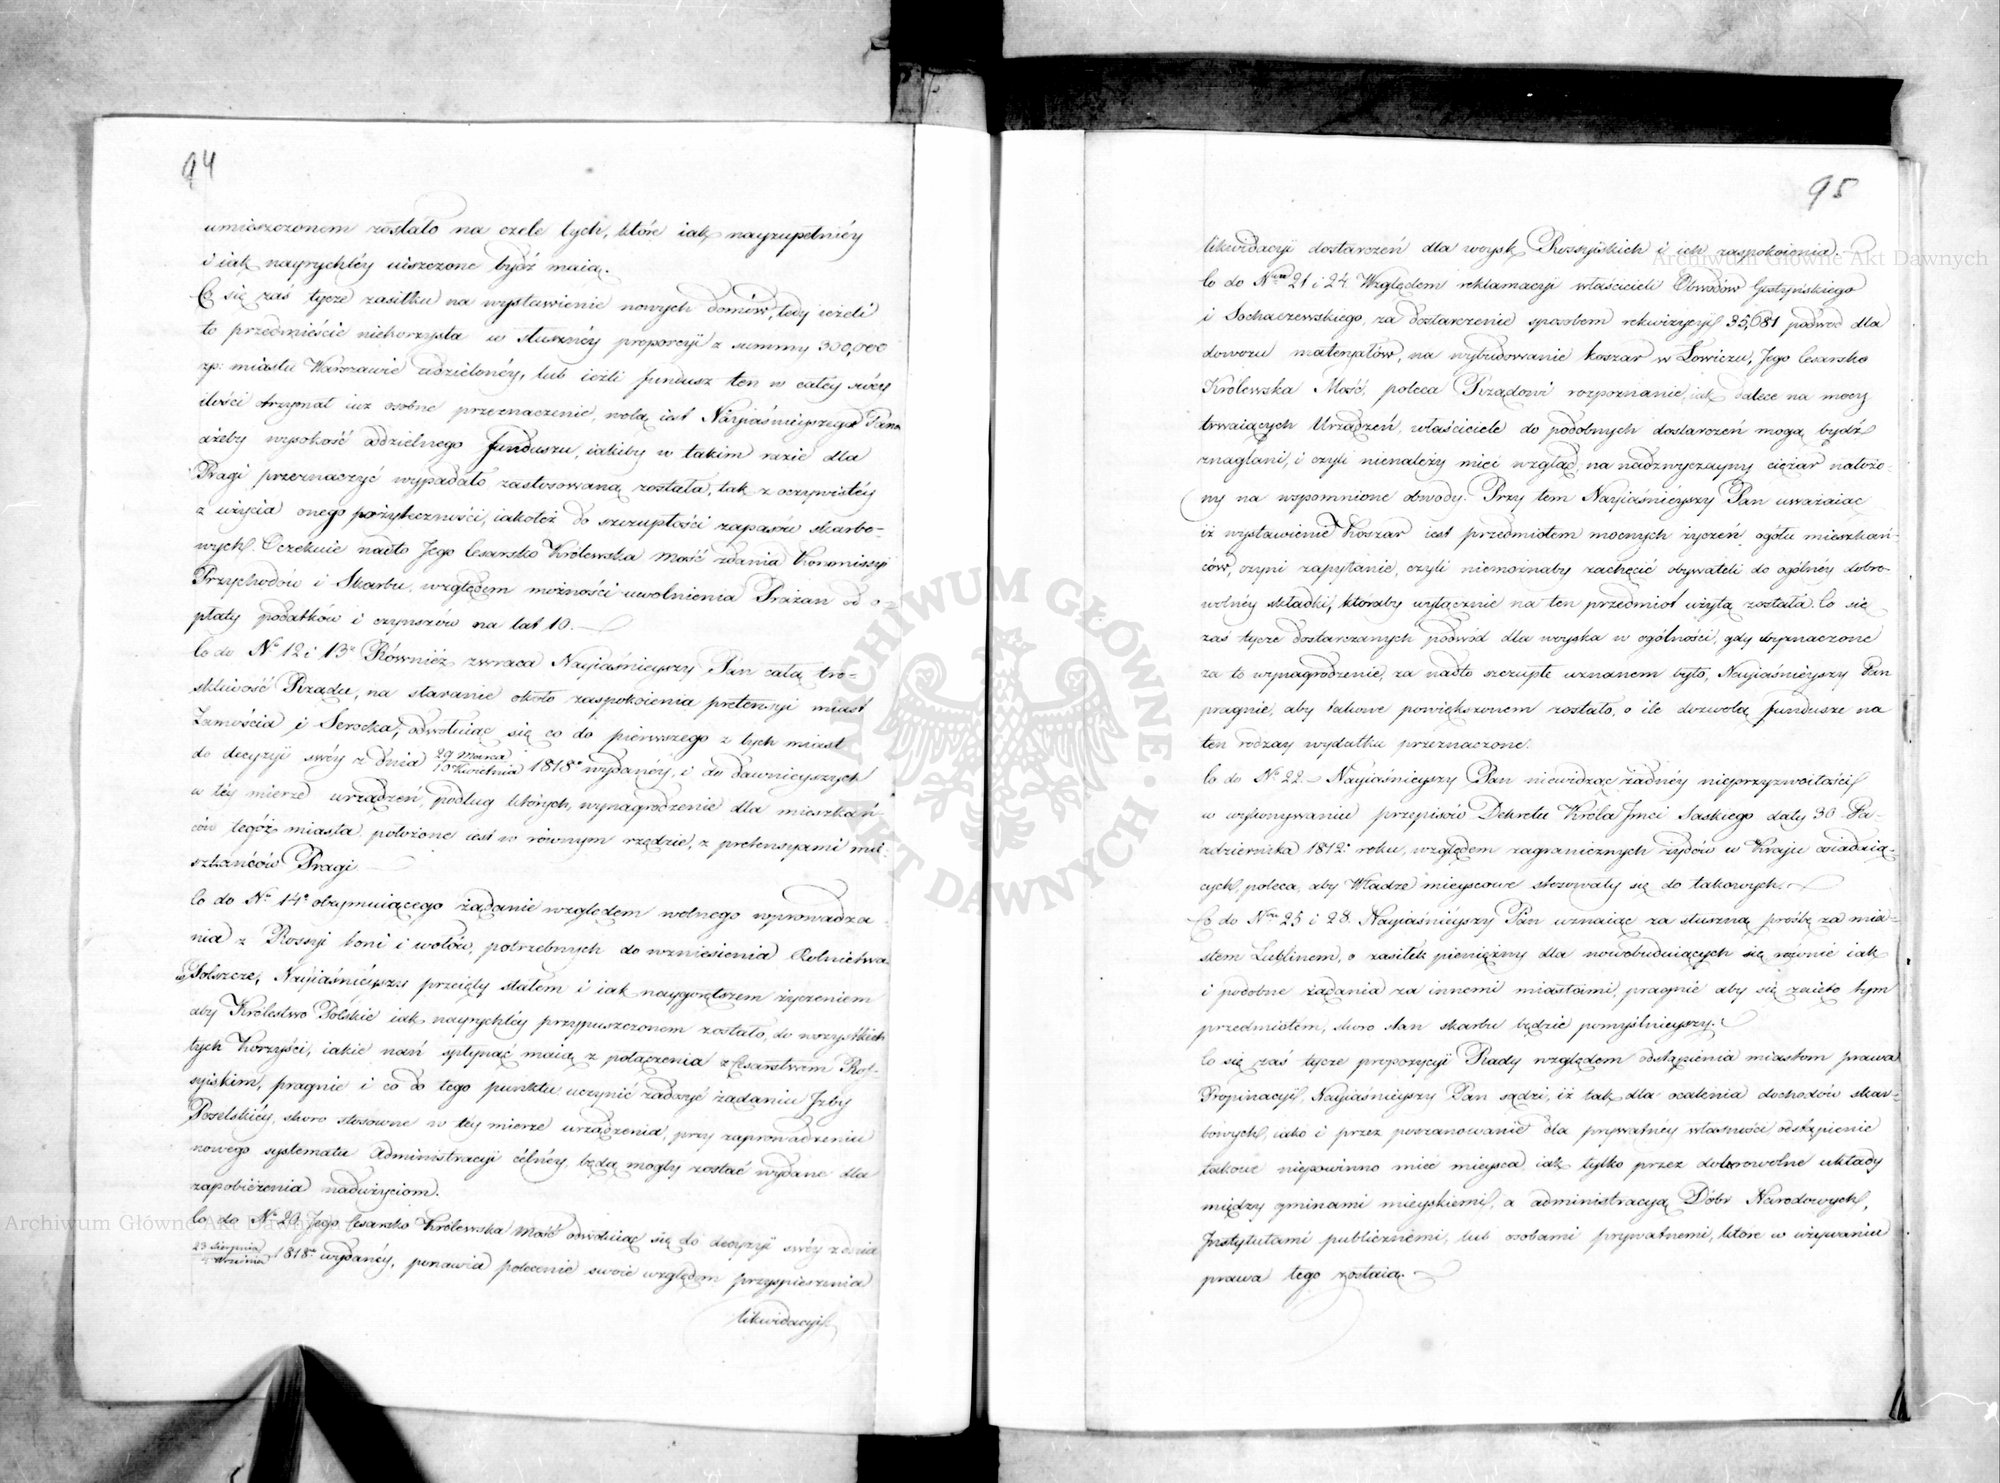 94
umieszczonem zostało na czele tych, które iak nayzupełniéy
i iak nayrychléy uiszczone bydź maią.
Co się zaś tycze zasiłku na wystawienie nowych domów, tedy ieżeli
to przedmieście niekorzysta w słusznéy proporcyi z summy 300,000
zp: miastu Warszawie udzielonéy, lub ieżli fundusz ten w całey swéy
ilości otrzymał iuż osobne przeznaczenie, wolą iest Nayiaśnieyszego Pana
ażeby wysokość oddzielnego funduszu, iakiby w takim razie dla
Pragi przeznaczyć wypadało zastosowaną została, tak z oczywistéy
z użycia onego pożyteczności, iakoteż do szczupłości zapasów skarbo-
wych. Oczekuie nadto Jego Cesarsko Królewska Mość zdania Kommissyi
Przychodów i Skarbu, względem możności uwolnienia Prażan od o-
płaty podatków i czynszów na lat 10.
Co do Nº 12 i 13º Równiéż zwraca Nayiaśnieyszy Pan całą tro-
skliwość Rządu, na staranie około zaspokoienia pretensyi miast
Zamościa i Serocka, odwołuiąc się co do pierwszego z tych miast
do decyzyi swéy z dnia 29 Marca / 10 Kwietnia 1818º wydanéy, i do dawnieyszych
w téy mierze urządzeń, podług których, wynagrodzenie dla mieszkań-
ców tegoż miasta położone iest w równym rzędzie, z pretensyami mie-
szkańców Pragi
Co do Nº 14º obeymuiącego żądanie względem wolnego wprowadza-
nia z Rossyi koni i wołów, potrzebnych do wzniesienia Rolnictwa
w Polszcze, Nayiaśnieyszy przeięty stałem i iak naygorętszem życzeniem
aby Królestwo Polskie iak nayrychléy przypuszczonem zostało, do wszystkich
tych Korzyści, iakie nań spłynąć maią z połączenia z Cesarstwem Ros-
syiskim, pragnie i co do tego punktu uczynić zadosyć żądaniu Izby
Poselskiéy, skoro stosowne w téy mierze urządzenia, przy zaprowadzeniu
nowego systematu Administracyi célnéy, będą mogły zostać wydane dla
zapobieżenia nadużyciom.
Co do Nº 20 Jego Cesarsko Królewska Mość odwołuiąc się do decyzyi swéy z dnia
23 Sierpnia / 4 Września 1818º wydanéy, ponawia polecenie swoie względem przyspieszenia
likwidacyi
95
likwidacyi dostarczeń dla woysk Rossyiskich i ich zaspokoienia.
Co do Nrów 21 i 24 Względem reklamacyi właścicieli Obwodów Gostyńskiego
i Sochaczewskiego, za dostarczenie sposobem rekwizycyi 35,681 podwód dla
dowozu materyałów, na wybudowanie koszar w Łowiczu, Jego Cesarsko
Królewska Mość, poleca Rządowi rozpoznanie, iak dalece na mocy
trwaiących Urządzeń, właściciele do podobnych dostarczeń mogą bydź
znagłani, i czyli nienależy mieć wzgląd, na nadzwyczayny ciężar nałożo-
ny na wspomnione obwody. Przy tem Nayiaśnieyszy Pan uważaiąc
iż wystawienie Koszar iest przedmiotem mocnych życzeń ogółu mieszkań-
ców, czyni zapytanie, czyli niemożnaby zachęcić obywateli do ogólnéy dobro-
wolnéy składki, któraby wyłącznie na ten przedmiot użytą została. Co się
zaś tycze dostarczanych podwód dla woyska w ogólności, gdy wyznaczone
za to wynagrodzenie, za nadto szczupłe uznanem było, Nayiaśnieyszy Pan
pragnie, aby takowe powiększonem zostało, o ile dozwolą fundusze na
ten rodzay wydatku przeznaczone.
Co do Nº 22 – Nayiaśnieyszy Pan niewidząc żadnéy nieprzyzwoitości
w wykonywaniu przepisów Dekretu Króla Jmci Saskiego daty 30 Pa-
ździernika 1812º roku, względem zagranicznych żydów w Kraju osiadaią-
cych, poleca, aby Władze mieyscowe stosowały się do takowych.
Co do Nrów 25 i 28. Nayiaśnieyszy Pan uznaiąc za słuszną prośbę za mia-
stem Lublinem, o zasiłek pieniężny dla nowobuduiących się równie iak
i podobne żądania za innemi miastami, pragnie aby się zaięto tym
przedmiotem, skoro stan skarbu będzie pomyślnieyszy.
Co się zaś tycze propozycyi Rady względem odstąpienia miastom prawa
Propinacyi, Nayiaśnieyszy Pan sądzi, iż tak dla ocalenia dochodów skar-
bowych, iako i przez poszanowanie dla prywatnéy własności odstąpienie
takowe niepowinno mieć mieysca, iak tylko przez dobrowolne układy
między gminami mieyskiemi, a administracyą Dóbr Narodowych,
Instytutami publicznemi, lub osobami prywatnemi, które w używaniu
prawa tego zostaią.
Archiwum Główne Akt Dawnych
Archiwum Główne Akt Dawnych
ARCHIWUM GŁÓWNE AKT DAWNYCH